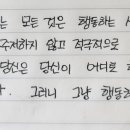 는 모든 것은 행동하는 사
주저하지 않고 적극적으로
당신은 당신이 어디로
다. 그러니 그냥 행동하